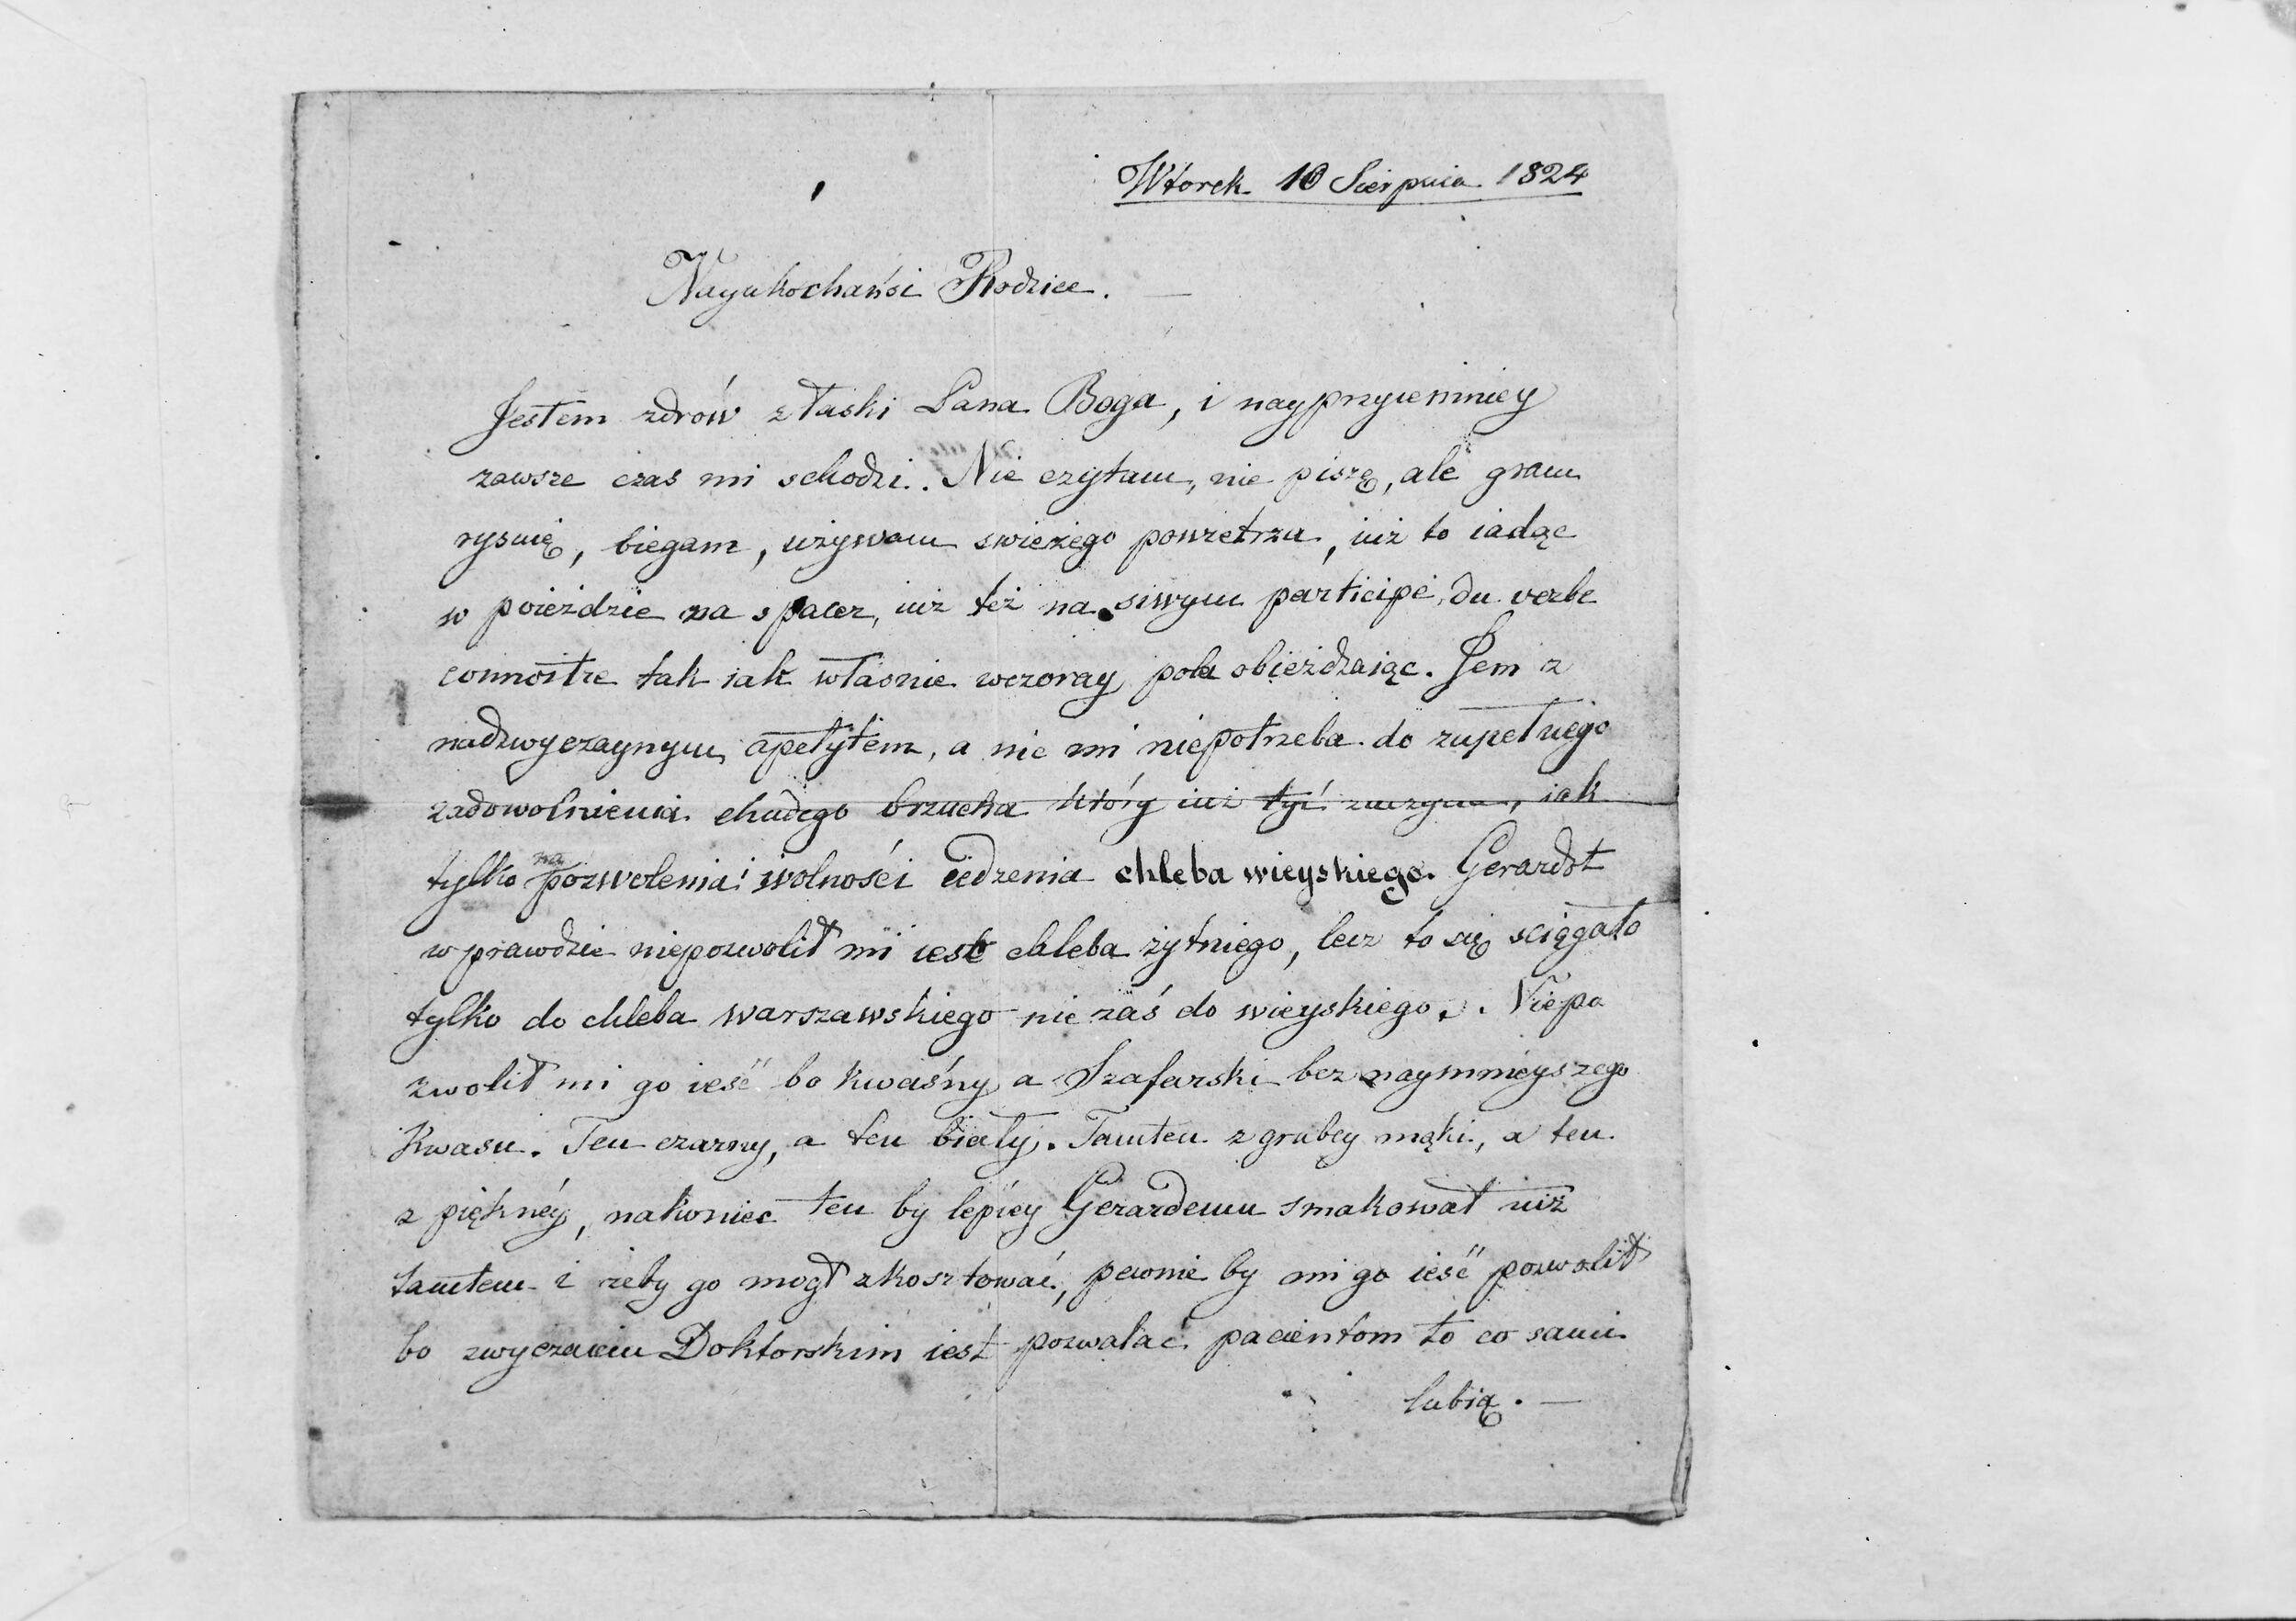 Wtorek 10 Sierpnia 1824
Nayukochańsi Rodzice. —
Jestem zdrów z łaski Pana Boga, i nayprzyiemniey
zawsze czas mi schodzi. Nie czytam, nie piszę, ale gram
rysuię, biegam, używam swieżego powietrza, iuż to iadąc
w poieździe na spacer, iuż też na siwym participe du verbe
connoitre tak iak własnie wczoray pola obieżdzaiąc. Jem z
nadzwyczaynym apetytem, a nic mi niepotrzeba do zupełnego
zadowolnienia chudego brzucha który iuż tyć zaczyna, iak
tylko na pozwolenia i wolności iedzenia chleba wieyskiego. Gerardot
w prawdzie niepozwolił mi iesć chleba żytniego, lecz to się sciągało
tylko do chleba warszawskiego nie zaś do wieyskiego. Niepo
zwolił mi go ieść bo kwaśny a Szafarski bez naymnieyszego
Kwasu. Ten czarny, a ten biały. Tamten z grubey mąki, a ten
z pięknéy, nakoniec ten by lepiey Gerardemu smakował niż
tamten i żeby go mogł zkosztować, pewnie by mi go ieść pozwolił
bo zwyczaiem Doktorskim iest pozwalać pacientom to co sami
lubią. —